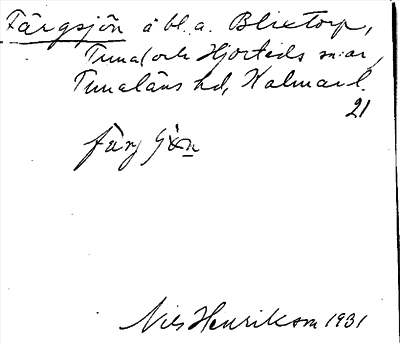 Färgsjön å bl.a. Blixtorp,
Tuna (och Hjorteds sn:ar,
Tunaläns hd, Kalmar l.
21
färj
Nils Henrikson 1931